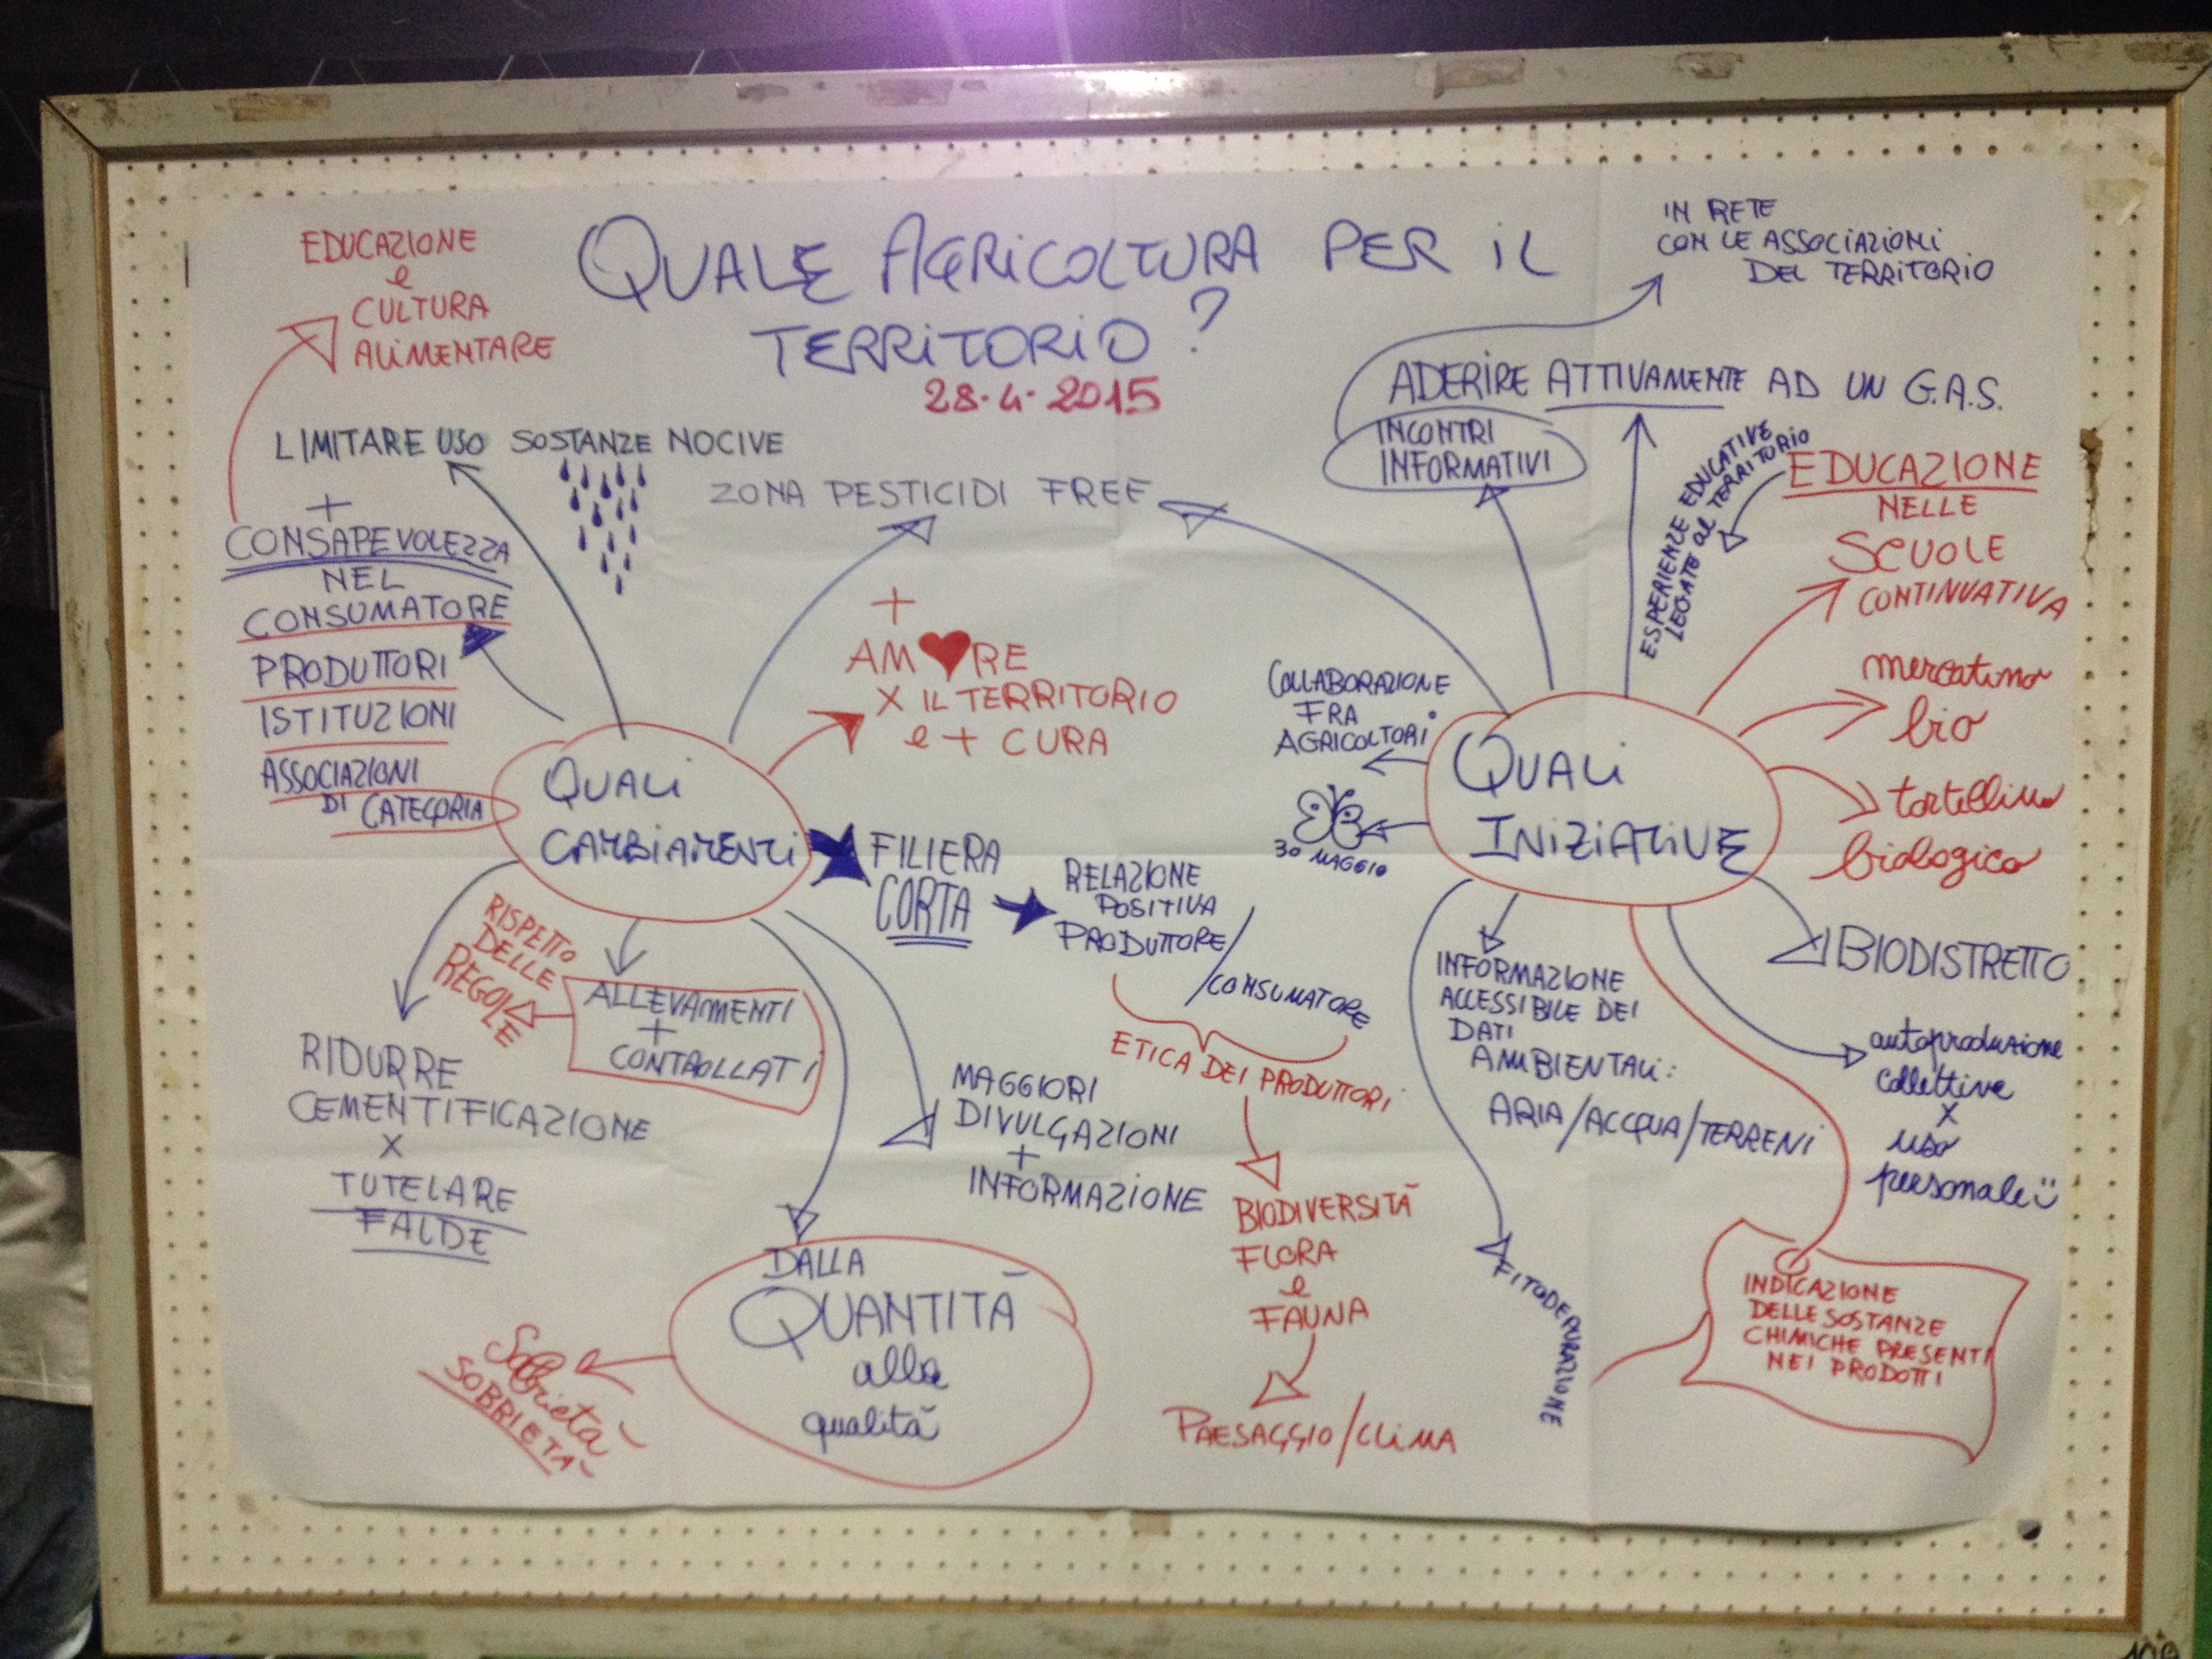 QUALE AGRICOLTURA PER IL
TERRITORIO?
28·4·2015
EDUCAZIONE
e
CULTURA
ALIMENTARE
LIMITARE USO SOSTANZE NOCIVE
+
CONSAPEVOLEZZA
NEL
CONSUMATORE
PRODUTTORI
ISTITUZIONI
ASSOCIAZIONI
DI CATEGORIA
ZONA PESTICIDI FREE
+
AM♥RE
X IL TERRITORIO
e + CURA
QUALI
CAMBIAMENTI
FILIERA
CORTA
RELAZIONE
POSITIVA
PRODUTTORE/
/CONSUMATORE
ETICA DEI PRODUTTORI
BIODIVERSITÀ
FLORA
e
FAUNA
PAESAGGIO/CLIMA
RISPETTO
DELLE
REGOLE
ALLEVAMENTI
+
CONTROLLATI
RIDURRE
CEMENTIFICAZIONE
X
TUTELARE
FALDE
MAGGIORI
DIVULGAZIONI
+
INFORMAZIONE
DALLA
QUANTITÀ
alla
qualità
Sobrietà
SOBRIETÀ
IN RETE
CON LE ASSOCIAZIONI
DEL TERRITORIO
ADERIRE ATTIVAMENTE AD UN G.A.S.
INCONTRI
INFORMATIVI
ESPERIENZE EDUCATIVE
LEGATE al TERRITORIO
EDUCAZIONE
NELLE
SCUOLE
CONTINUATIVA
mercatino
bio
tortellino
biologico
COLLABORAZIONE
FRA
AGRICOLTORI
30 MAGGIO
QUALI
INIZIATIVE
BIODISTRETTO
autoproduzione
collettive
X
uso
personale
INFORMAZIONE
ACCESSIBILE DEI
DATI
AMBIENTALI:
ARIA/ACQUA/TERRENI
FITODEPURAZIONE
INDICAZIONE
DELLE SOSTANZE
CHIMICHE PRESENTI
NEI PRODOTTI